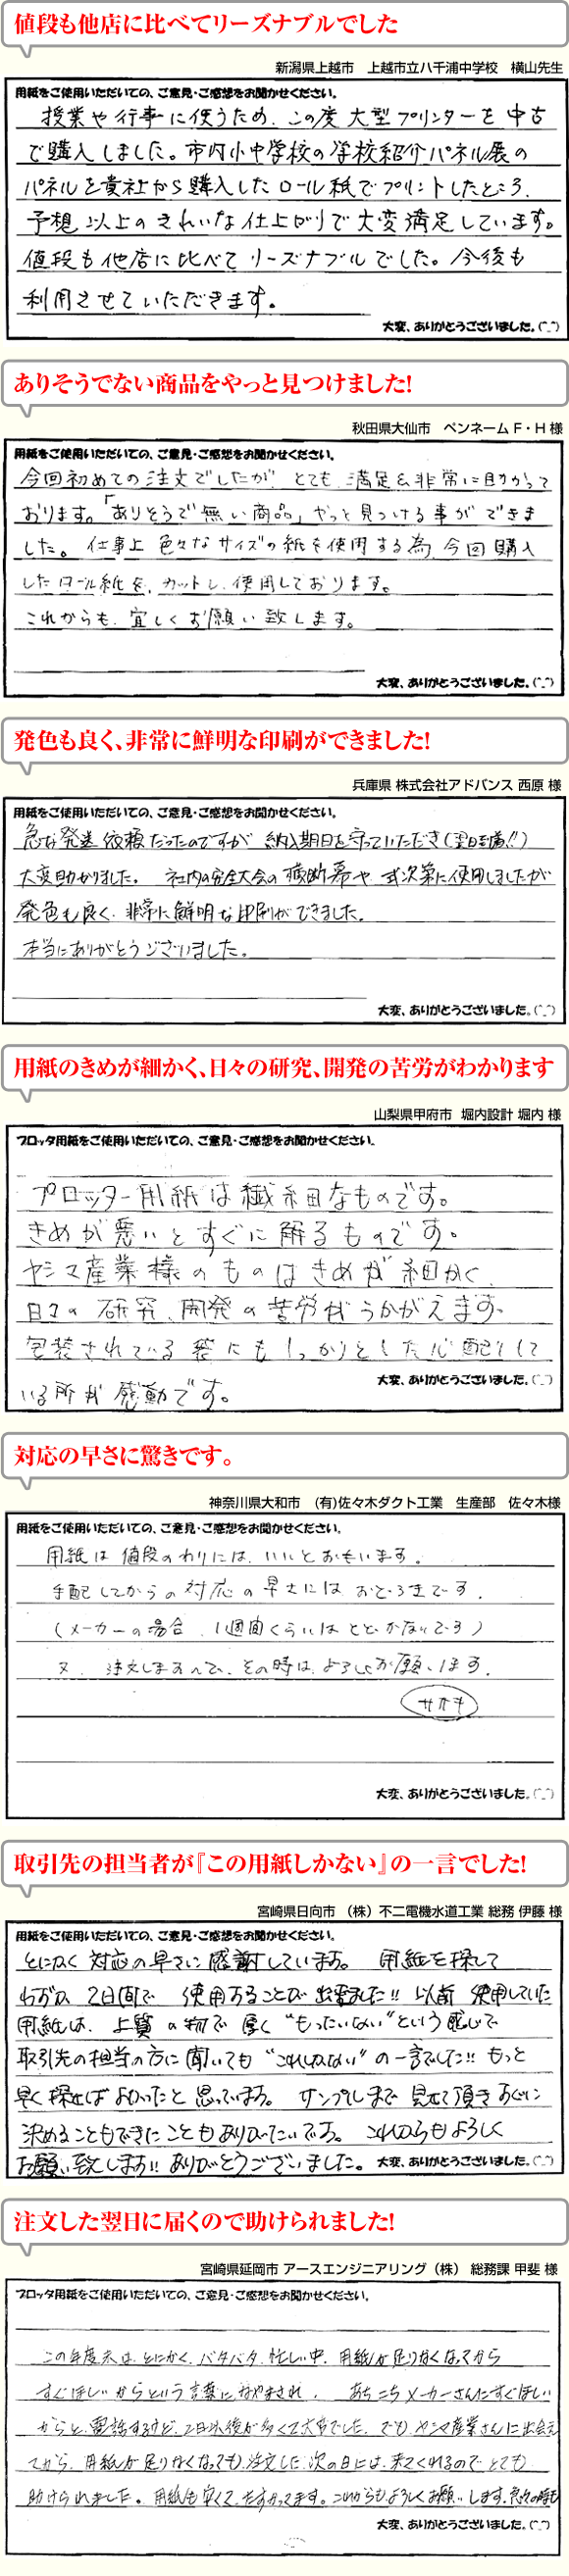 値段も他店に比べてリーズナブルでした
新潟県上越市　上越市立八千浦中学校　横山先生
用紙をご使用いただいての、ご意見・ご感想をお聞かせください。
授業や行事に使うため、この度 大型プリンターを中古
で購入しました。市内小中学校の学校紹介パネル展の
パネルを貴社から購入したロール紙でプリントしたところ、
予想以上のきれいな仕上がりで大変満足しています。
値段も他店に比べてリーズナブルでした。今後も
利用させていただきます。
大変、ありがとうございました。(^_^)
ありそうでない商品をやっと見つけました!
秋田県大仙市　ペンネームF・H様
用紙をご使用いただいての、ご意見・ご感想をお聞かせください。
今回初めての注文でしたが とても 満足&非常に助かって
おります。「ありそうで無い商品」やっと見つける事ができま
した。 仕事上 色々なサイズの紙を使用する為、今回購入
したロール紙を、カットし、使用しております。
これからも、宜しくお願い致します。
大変、ありがとうございました。(^_^)
発色も良く、非常に鮮明な印刷ができました!
兵庫県 株式会社アドバンス 西原 様
用紙をご使用いただいての、ご意見・ご感想をお聞かせください。
急な発送依頼だったのですが 納入期日を守っていただき(翌日到着!!)
大変助かりました。 社内の安全大会の横断幕や 式次第に使用しましたが
発色も良く、非常に鮮明な印刷ができました。
本当にありがとうございました。
大変、ありがとうございました。(^_^)
用紙のきめが細かく、日々の研究、開発の苦労がわかります
山梨県甲府市 堀内設計 堀内 様
プロッタ用紙をご使用いただいての、ご意見・ご感想をお聞かせください。
プロッター用紙は繊細なものです。
きめが悪いとすぐに解るものです。
ヤシマ産業様のものはきめが細かく、
日々の研究、開発の苦労がうかがえます。
包装されている袋にもしっかりとした心配りして
いる所が感動です。
大変、ありがとうございました。(^_^)
対応の早さに驚きです。
神奈川県大和市　(有)佐々木ダクト工業　生産部　佐々木様
用紙をご使用いただいての、ご意見・ご感想をお聞かせください。
用紙は値段のわりには、いいとおもいます。
手配してからの対応の早さにはおどろきです。
(メーカーの場合、1週間くらいはとどかないです)
又、注文しますので、その時は、よろしくお願いします。
ササキ
大変、ありがとうございました。(^_^)
取引先の担当者が『この用紙しかない』の一言でした!
宮崎県日向市 （株）不二電機水道工業 総務 伊藤 様
用紙をご使用いただいての、ご意見・ご感想をお聞かせください。
とにかく対応の早さに感謝しています。 用紙を探して
わずか2日間で 使用することが出来ました!! 以前 使用していた
用紙は、上質の物で 厚く“もったいない”という感じで
取引先の担当の方に聞いても“これしかない”の一言でした!! もっと
早く探せばよかったと思っています。 サンプルまで見せて頂きすぐに
決めることもできたこともありがたいです。 これからもよろしく
お願い致します!! ありがとうございました。 大変、ありがとうございました。(^_^)
注文した翌日に届くので助けられました!
宮崎県延岡市 アースエンジニアリング（株） 総務課 甲斐 様
プロッタ用紙をご使用いただいての、ご意見・ご感想をお聞かせください。
この年度末は、とにかく、バタバタ、忙しい中、用紙が足りなくなってから
すぐほしいからという言葉になやまされ、 あちこちメーカーさんにすぐほしい
からと、電話するけど、2日以後が多くて大変でした。でも、ヤシマ産業さんに出会え
てから、用紙が足りなくなっても、注文した次の日には、来てくれるのでとても
助けられました。用紙も安くて、たすかってます。これからもよろしくお願いします。
大変、ありがとうございました。(^_^)